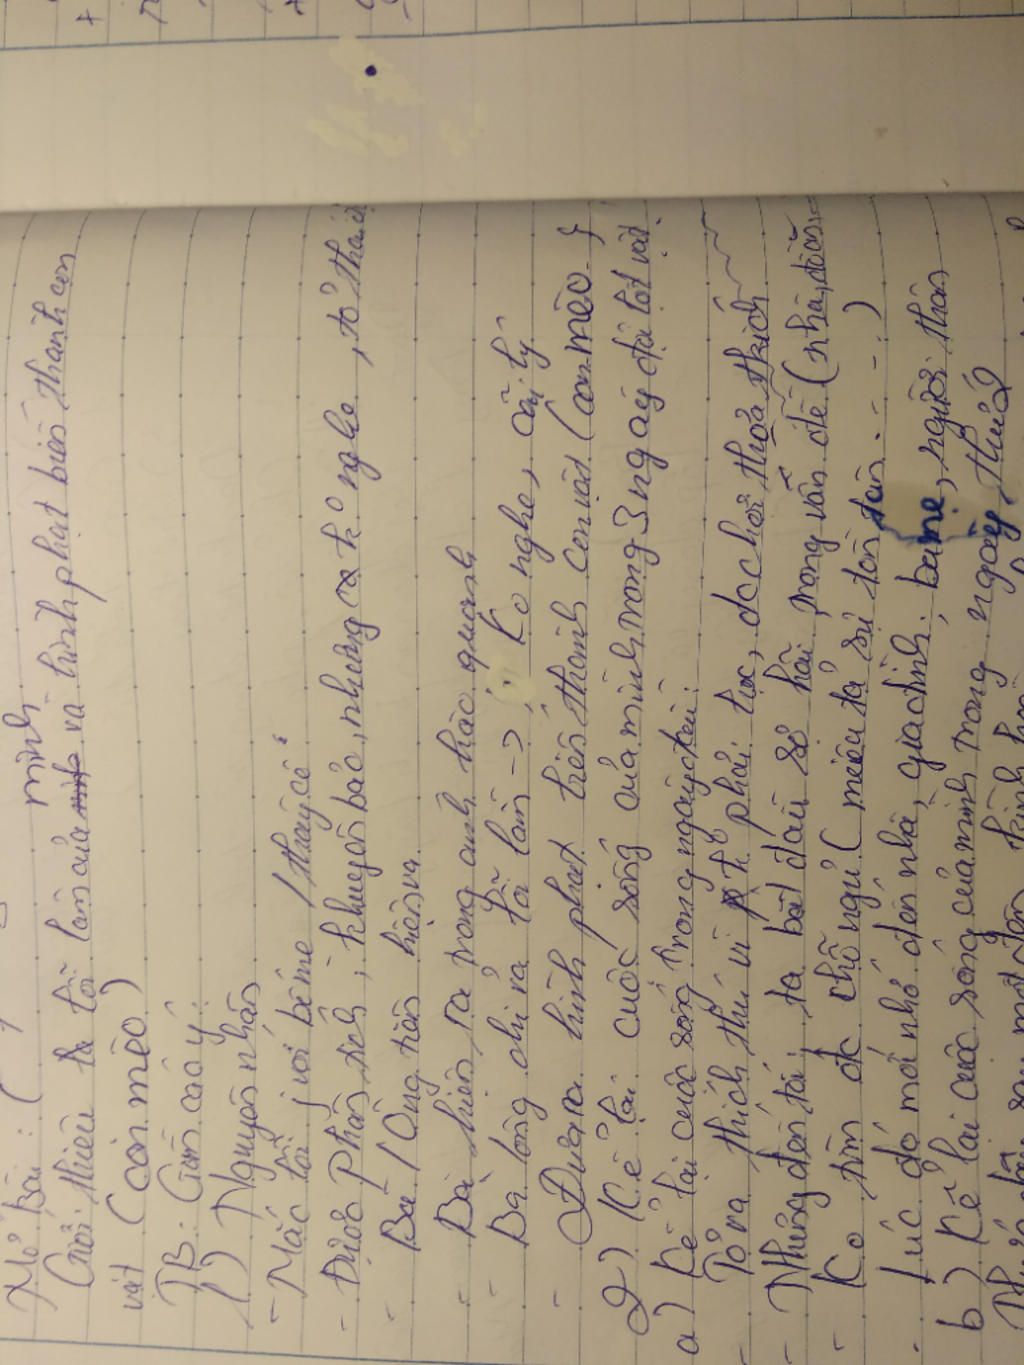 Mở Bài : (
Giới thiệu tả lỗi lầm của mình và hình phạt biến thành con
vật (con mèo)
TB: Gồm các ý:
1) Nguyên nhân
- Mắc lỗi j với bố mẹ / thầy cô
- Được phân tích, khuyên bảo, nhưng k° nghe, tỏ thái
- Bà / Ông tiên hiện ra
- Bà hiện ra trong ánh hào quang
- Ba lòng chỉ ra lỗi lầm -> Ko nghe, cãi lý
- Đưa ra hình phạt biến thành con vật (con mèo)
2) Kể lại cuộc sống của mình trong 3 ngày đội lốt vật.
a) Kể lại cuộc sống trong ngày đầu:
- Tỏ ra thích thú vì k° phải học, đc chơi thỏa thích
- Nhưng đến tối, ta bắt đầu sợ hãi trong vấn đề (nhà, đồ ăn
- Ko tìm đc chỗ ngủ (miêu tả sự tồi tàn . - - .)
- Lúc đó mới nhớ đến nhà, gia đình, ba mẹ, người thân
b) Kể lại cuộc sống của mình trong ngày thứ 2